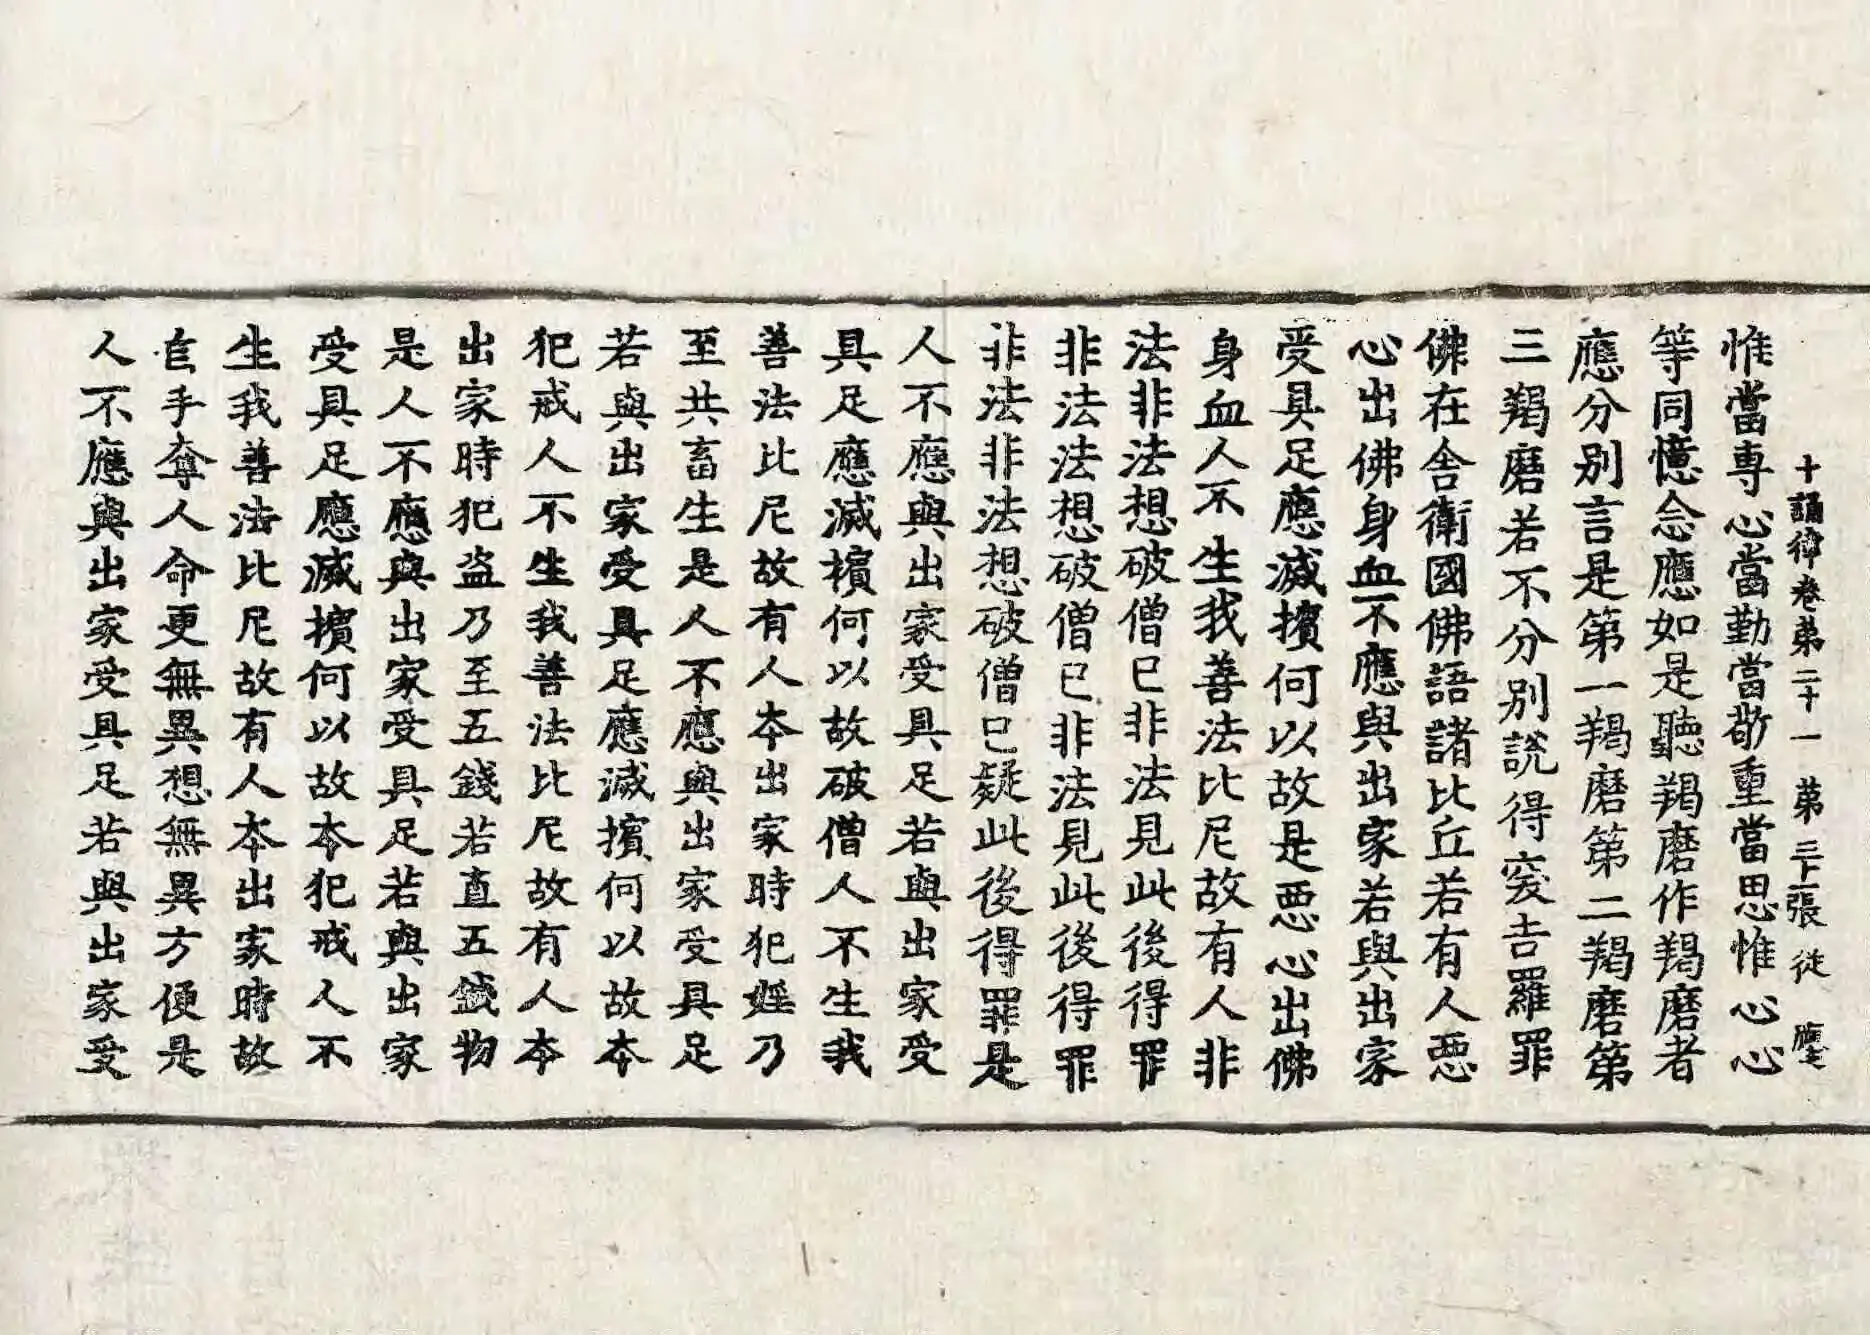 十誦律卷第二十一 第三十二張 從
惟當専心當勤當敬重當思惟心心
等同憶念應如是聽羯磨作羯磨者
應分別言是第一羯磨第二羯磨第
三羯磨若不分別說得突吉羅罪
佛在舍衛國佛語諸比丘若有人惡
心出佛身血不應與出家若與出家
受具足應滅擯何以故是惡心出佛
身血人不生我善法比尼故有人非
法非法想破僧已非法見此後得罪
非法法想破僧已非法見此後得罪
非法非法想破僧已疑此後得罪是
人不應與出家受具足若與出家受
具足應滅擯何以故破僧人不生我
善法比尼故有人本出家時犯婬乃
至共畜生是人不應與出家受具足
若與出家受具足應滅擯何以故本
犯戒人不生我善法比尼故有人本
出家時犯盗乃至五錢若直五錢物
是人不應與出家受具足若與出家
受具足應滅擯何以故本犯戒人不
生我善法比尼故有人本出家時故
自手奪人命更無異想無異方便是
人不應與出家受具足若與出家受